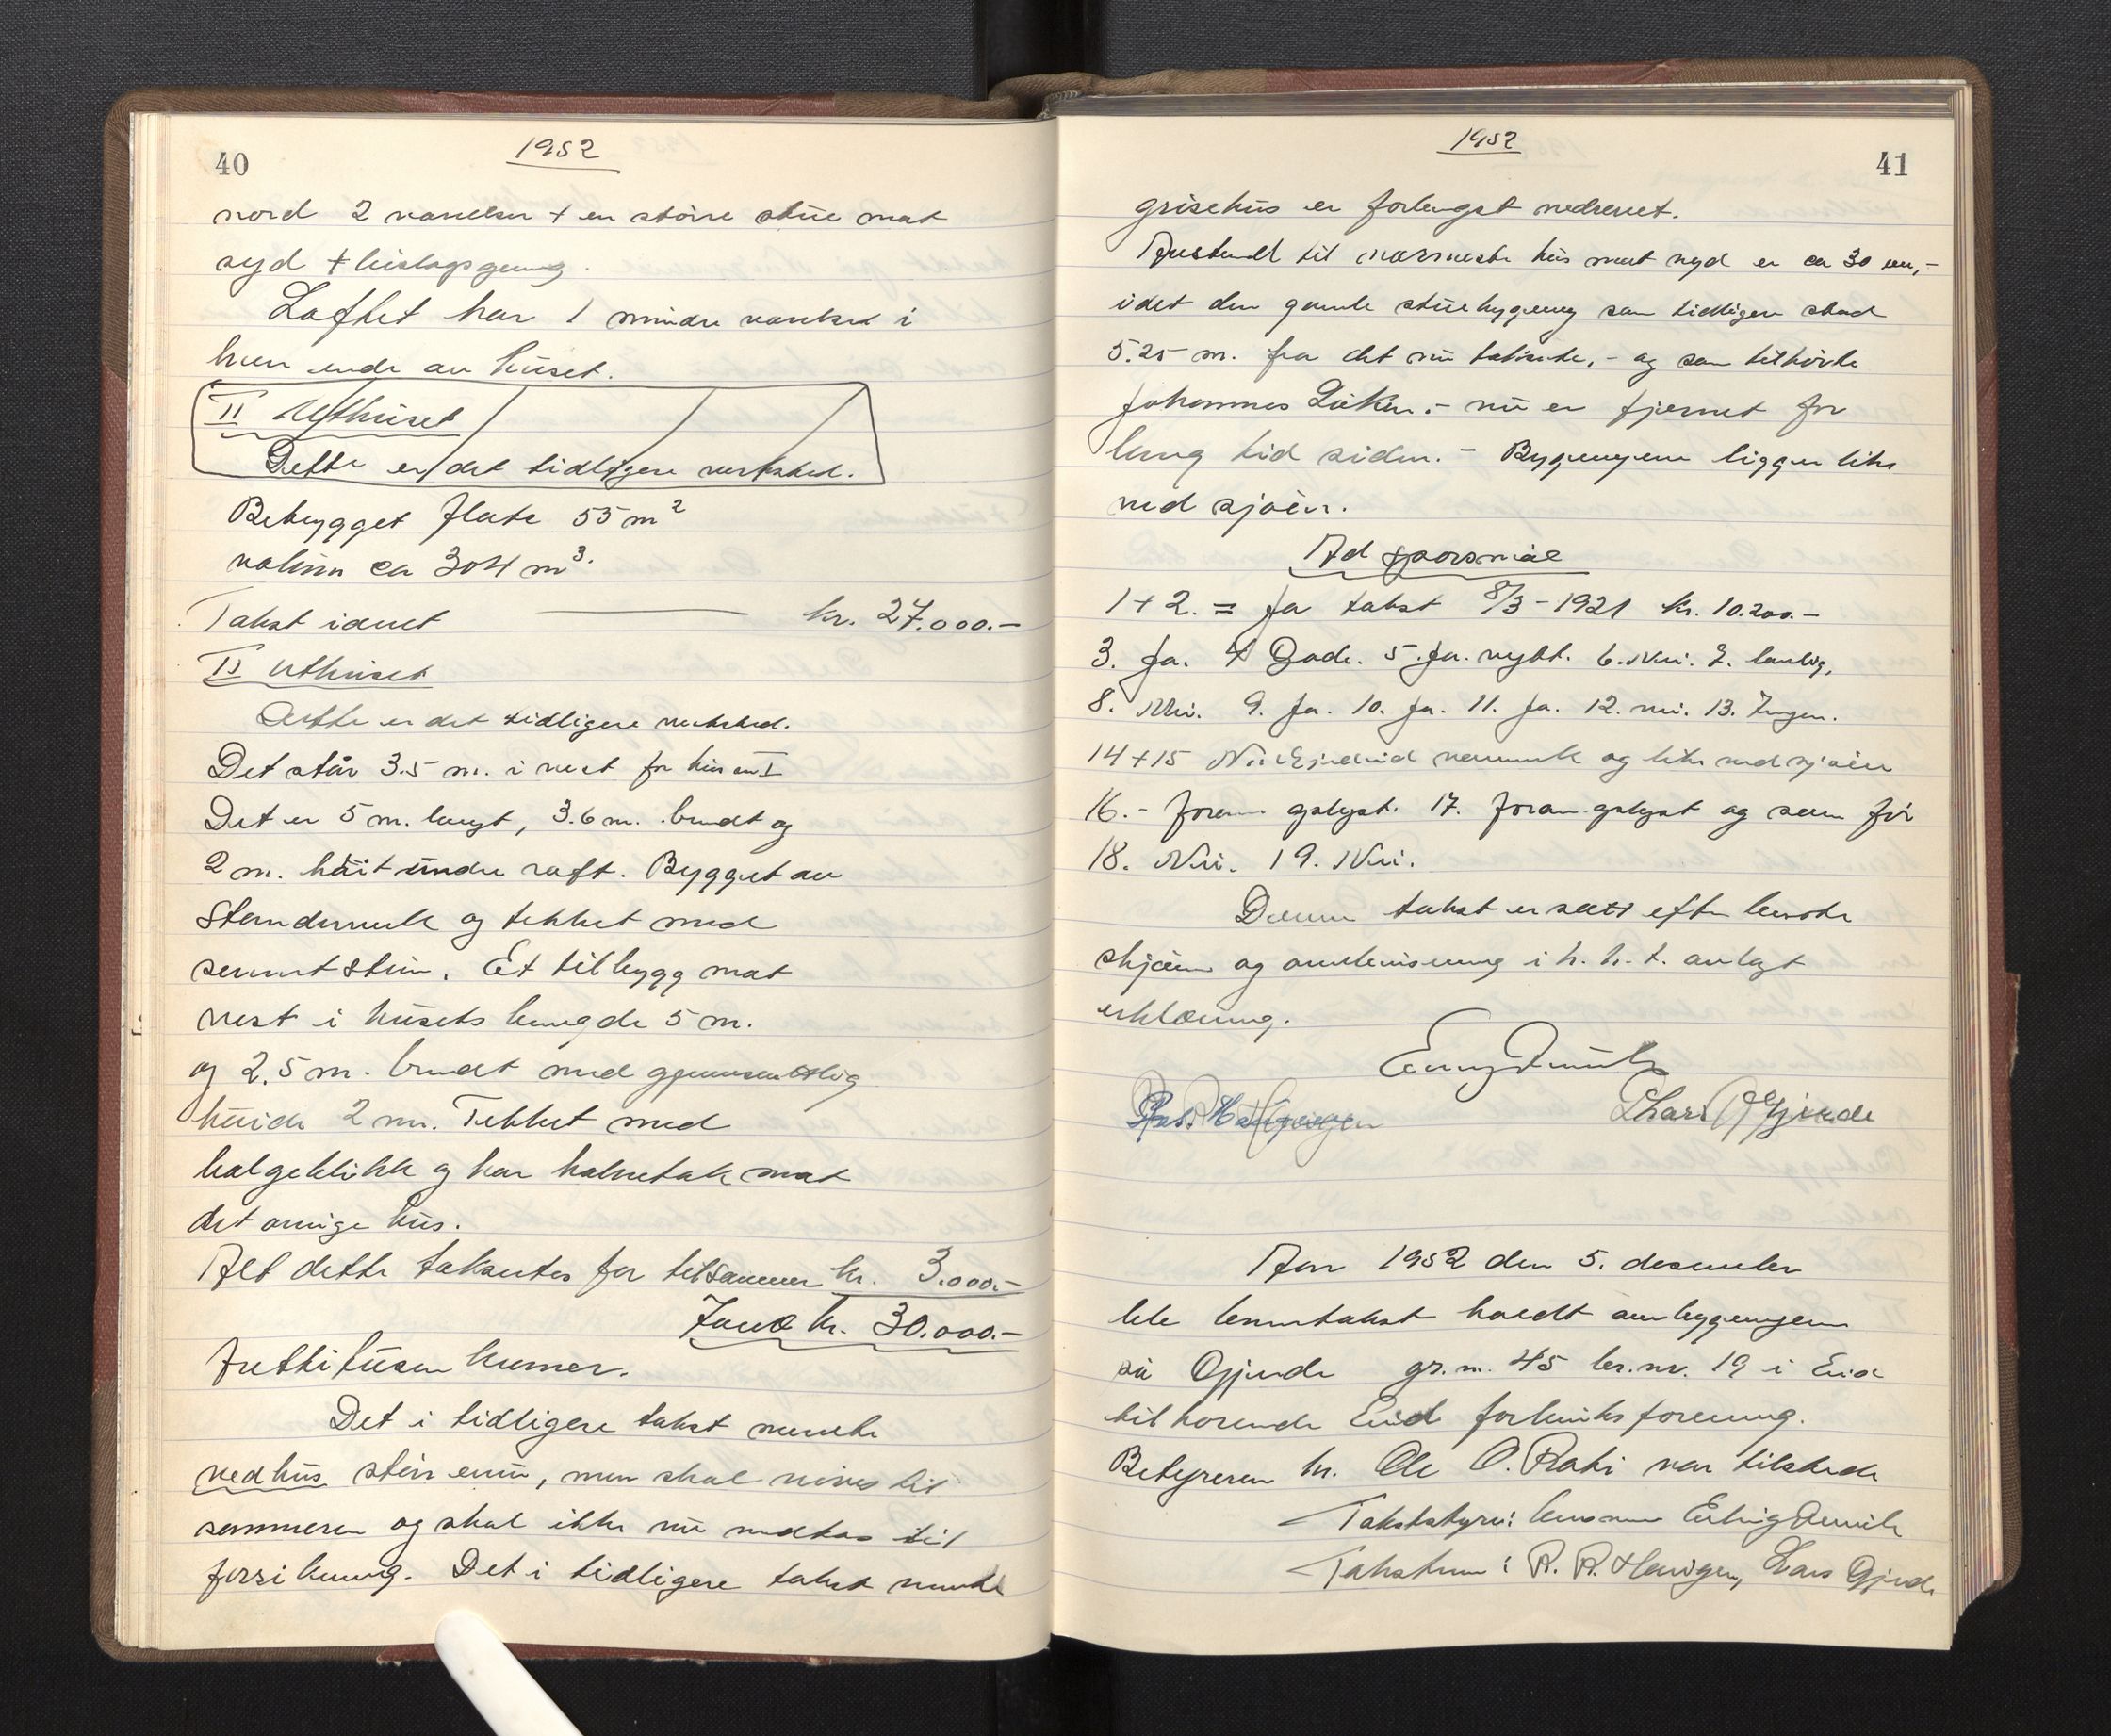 40
1952
nord 2 værelser + en större stue mot
syd + huslagsgang.
Loftet har 1 mindre værelse i
hver ende av huset.
II Uthuset
Dette er det tidligere verksted.
Bebygget flate 55 m²
volum ca 304 m³.
Takst idnet kr. 27.000.-
II Uthuset
Dette er det tidligere verksted.
Det står 3.5 m. i vest for hus no I
Det er 5 m. langt, 3.6 m. bredt og
2 m. höit under raft. Bygget av
Standerverk og tekket med
sementsten. Et tilbygg mot
vest i husets lengde 5 m.
og 2.5 m. bredt med gjennemsnitlig
höide 2 m. Tekket med
bølgeblikk og har halvetak mot
det övrige hus.
Alt dette taksertes for tilsammen kr. 3.000.-
kr. 30.000.-
Tretti tusen kroner.
Det i tidligere takst nevnte
vedhus står ennu, men skal rives til
sommeren og skal ikke nu medtas til
forsikring. Det i tidligere takst nevnte
1952
41
grisehus er forlengst nedrevet.
Avstand til nærmeste hus mot syd er ca 30 m,-
idet den gamle stuebygning som tidligere stod
5.25 m. fra det nu takserte, - og som tilhörte
Johannes - nu er fjernet for
lang tid siden. - Bygningene ligger like
ved sjöen.
Ad spörsmål
1+2. = Ja takst 8/3-1921 kr. 10.200.-
3. Ja. 4 Gode. 5. Ja. nytt. 6. Nei. 7. lovlig,
8. Nei. 9. Ja. 10. Ja. 11. Ja. 12. nei. 13. Ingen.
14+15 Nei og like ved sjöen
16. - foran oplyst. 17. foran oplyst og som för
18. Nei. 19. Nei.
Denne takst er satt efter beste
skjönn og overbevisning i h. h. t. avlagt
erklæring.
Lars Gjerde
Aar 1952 den 5. desember
ble branntakst holdt over bygningen
på Gjerde gr.nr. 45 br.nr. 19 i Eid
tilhörende Eid forbruksforening.
Bestyreren hr. Ole O. var tilstede
Takstbestyrer: lensmann Erling
Takstmenn: R. R. Lars Gjerde